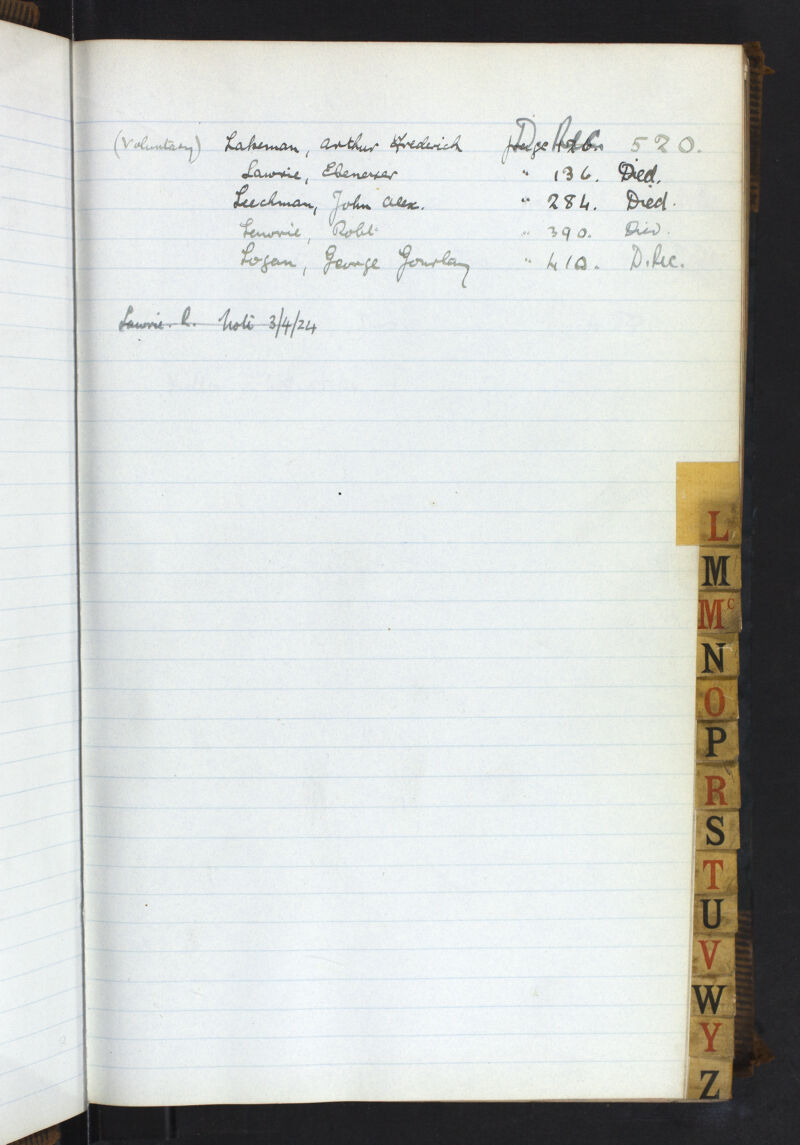 (Voluntary) Lakeman, Arthur Frederick Page 520.
Lawrie, Ebenezer " 136. Died.
Leechman, John Alex. " 284. Died.
Lawrie, Robt " 390. Died.
Logan, George Gourlay " 410. D. Rec.
Lawrie. R. Note 3/4/24
L
M
Mc
N
O
P
R
S
T
U
V
W
Y
Z